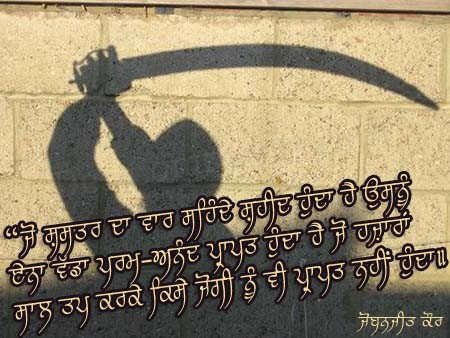 “ਜੋ ਸ਼ਸਤਰ ਦਾ ਵਾਰ ਸਹਿੰਦੇ ਸ਼ਹੀਦ ਹੁੰਦਾ ਹੈ ਉਸਨੂੰ
ਏਨਾ ਵੱਡਾ ਪਰਮ-ਅਨੰਦ ਪ੍ਰਾਪਤ ਹੁੰਦਾ ਹੈ ਜੋ ਹਜ਼ਾਰਾਂ
ਸਾਲ ਤਪ ਕਰਕੇ ਕਿਸੇ ਜੋਗੀ ਨੂੰ ਵੀ ਪ੍ਰਾਪਤ ਨਹੀਂ ਹੁੰਦਾ॥
ਜੋਬਨਜੀਤ ਕੌਰ